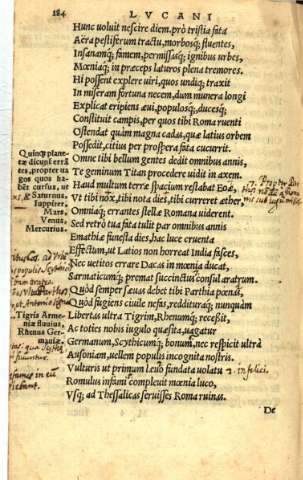 184
LVCANI
Hunc uoluit nescire diem, pro tristia fata
Aëra pestiferum tractu, morbosq; fluentes,
Insanamq; famem, permissasq; ignibus urbes,
Mœniaq; in præceps laturos plena tremores.
Hi possent explere uiri, quos undiq; traxit
In miseram fortuna necem, dum munera longi
Explicat eripiens æui, populosq; ducesq;
Constituit campis, per quos tibi Roma ruenti
Ostendat quàm magna cadas, quæ latius orbem
Possedit, citius per prospera fata cucurrit.
Omne tibi bellum gentes dedit omnibus annis,
Te geminum Titan procedere uidit in axem.
Haud multum terræ spacium restabat Eoæ,
Vt tibi nox, tibi nota dies, tibi curreret æther,
Omniaq; errantes stellæ Romana uiderent.
Sed retrò tua fata tulit par omnibus annis
Emathiæ funesta dies, hac luce cruenta
Effectum, ut Latios non horreat India fasces,
Nec uetitos errare Dacas in mœnia ducat,
Sarmaticumq; premat succinctus consul aratrum.
Quòd semper sæuas debet tibi Parthia pœnas,
Quòd fugiens ciuile nefas, redituraq; nunquam
Libertas ultra Tigrim, Rhenumq; recessit,
Ac toties nobis iugulo quæsita, uagatur
Germanum, Scythicumq; bonum, nec respicit ultrà
Ausoniam, uellem populis incognita nostris.
Vulturis ut primum Leuo fundata uolatu
Romulus infami compleuit mœnia luco,
Vsq; ad Thessalicas seruisses Roma ruinas.
De
Quinq; plane
tæ dicuntur errã
tes, propter ua
gos quos ha
bẽt cursus, ut
Saturnus,
Iuppiter
Mars,
Venus,
Mercurius.
Tigris Arme
niæ fluuius.
Rhenus Ger
maniæ.
infelici